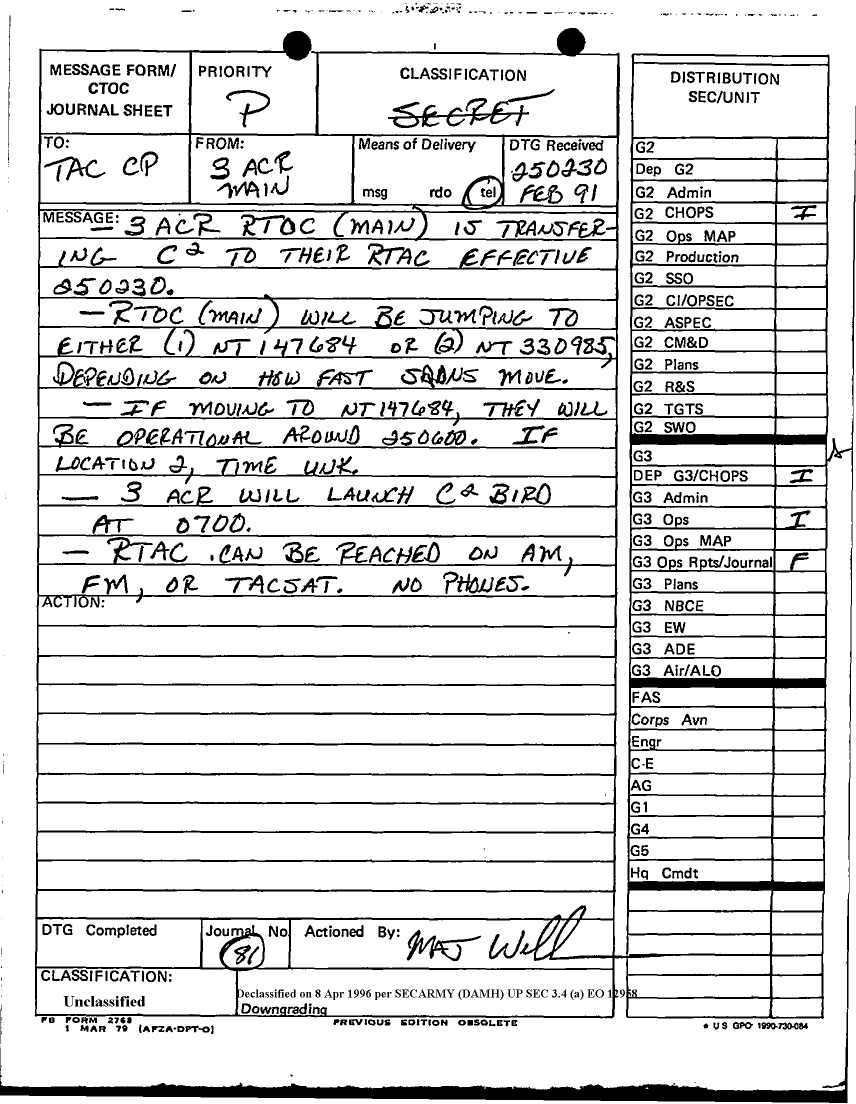 MESSAGE FORM/
CTOC
JOURNAL SHEET
PRIORITY
P
CLASSIFICATION
SECRET
TO:
TAC CP
FROM:
3 ACR
MAIN
Means of Delivery
msg rdo tel
DTG Received
250230
FEB 91
MESSAGE: — 3 ACR RTOC (MAIN) IS TRANSFER-
ING C2 TO THEIR RTAC EFFECTIVE
250230.
— RTOC (MAIN) WILL BE JUMPING TO
EITHER (1) NT 147684 OR (2) NT 330985,
DEPENDING ON HOW FAST SQDNS MOVE.
— IF MOVING TO NT147684, THEY WILL
BE OPERATIONAL AROUND 250600. IF
LOCATION 2, TIME UNK.
— 3 ACR WILL LAUNCH C2 BIRD
AT 0700.
— RTAC CAN BE REACHED ON AM,
FM, OR TACSAT. NO PHONES.
ACTION:
DTG Completed
Journal No
81
Actioned By: MAJ Will
CLASSIFICATION:
Unclassified
Declassified on 8 Apr 1996 per SECARMY (DAMH) UP SEC 3.4 (a) EO 12958
Downgrading
FB FORM 2768
1 MAR 79 (AFZA-DPT-O)
PREVIOUS EDITION OBSOLETE
DISTRIBUTION
SEC/UNIT
G2
Dep G2
G2 Admin
G2 CHOPS I
G2 Ops MAP
G2 Production
G2 SSO
G2 CI/OPSEC
G2 ASPEC
G2 CM&D
G2 Plans
G2 R&S
G2 TGTS
G2 SWO
G3
DEP G3/CHOPS I
G3 Admin
G3 Ops I
G3 Ops MAP
G3 Ops Rpts/Journal F
G3 Plans
G3 NBCE
G3 EW
G3 ADE
G3 Air/ALO
FAS
Corps Avn
Engr
C-E
AG
G1
G4
G5
Hq Cmdt
★ U S GPO 1990-730-084